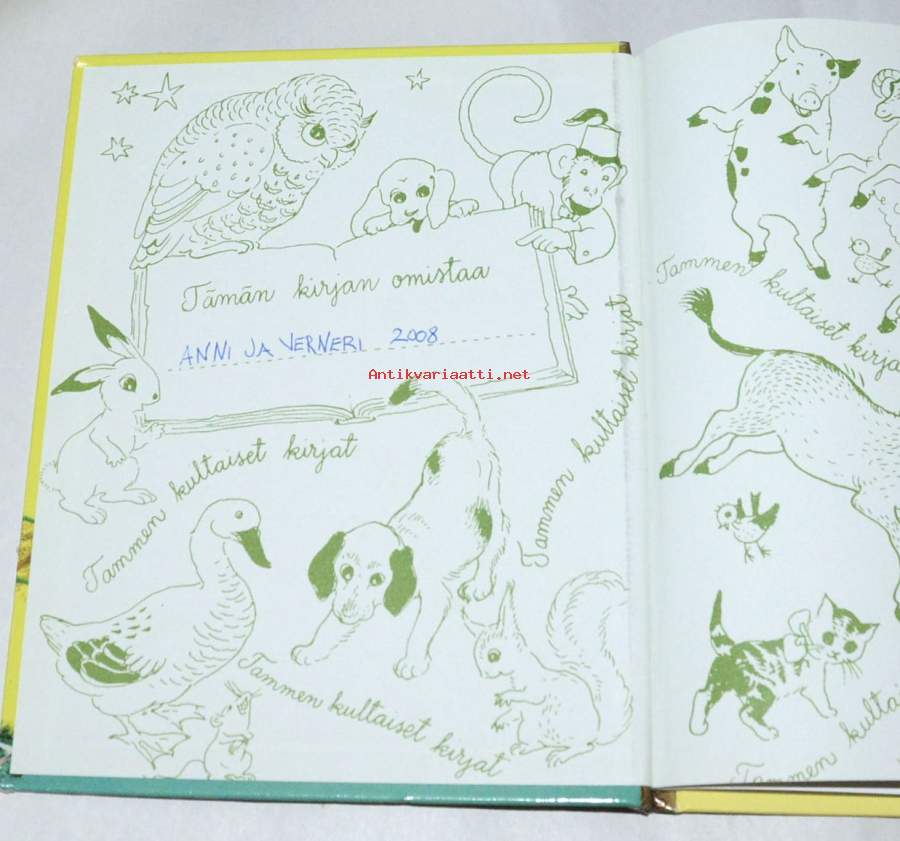 Tämän kirjan omistaa
ANNI JA VERNERI 2008
Antikvariaatti.net
Tammen kultaiset kirjat
Tammen kultaiset kirjat
Tammen kultaiset kirjat
Tammen kultaiset kirja
Tammen kultai